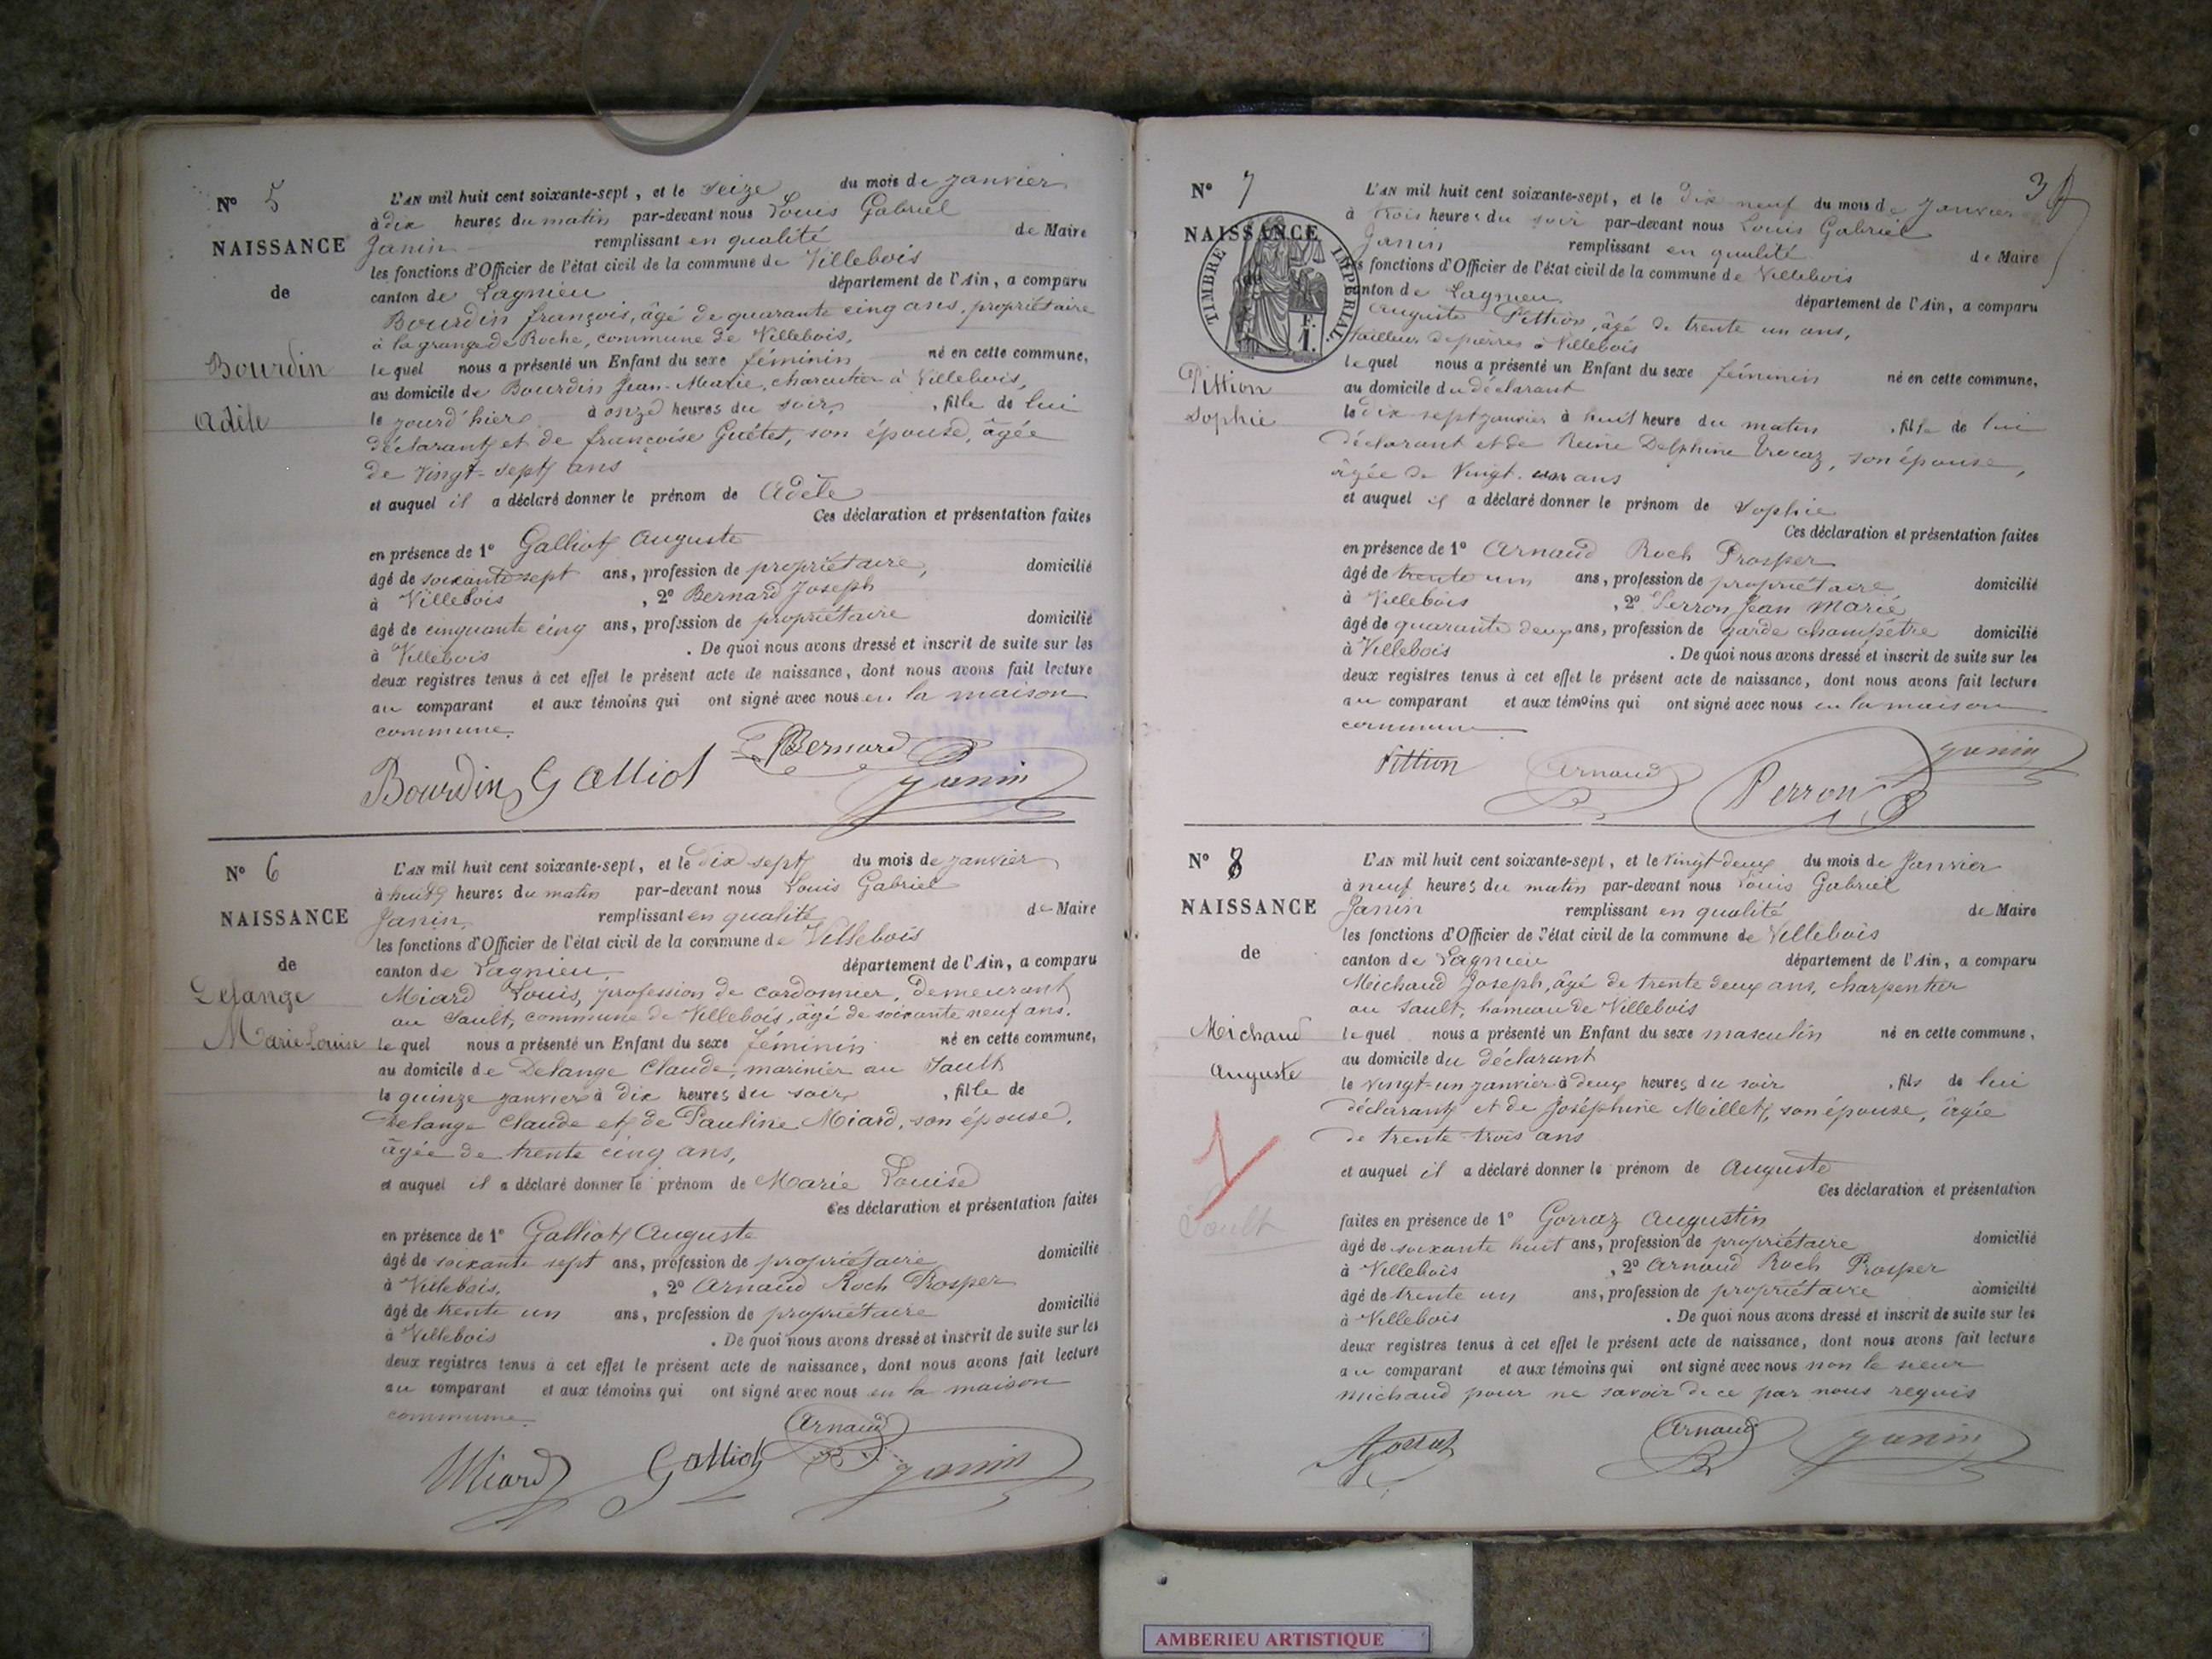 N° 5
L'AN mil huit cent soixante-sept, et le Seize du mois de Janvier
à dix heures du matin par-devant nous Louis Gabriel
NAISSANCE
Janin remplissant en qualité de Maire
les fonctions d'Officier de l'état civil de la commune de Villebois
de
canton de Lagnieu département de l'Ain, a comparu
Bourdin françois, âgé de quarante cinq ans, propriétaire
à la grange de Roche, commune de Villebois,
Bourdin
lequel nous a présenté un Enfant du sexe féminin né en cette commune,
au domicile de Bourdin Jean-Marie, charcutier à Villebois,
Adèle
le jourd'hier à onze heures du soir, fille de lui
déclarant et de françoise Guétet, son épouse, âgée
de vingt-sept ans
et auquel il a déclaré donner le prénom de Adèle
Ces déclaration et présentation faites
en présence de 1° Galliot Auguste
âgé de soixante sept ans, profession de propriétaire, domicilié
à Villebois, 2° Bernard Joseph
âgé de cinquante cinq ans, profession de propriétaire domicilié
à Villebois. De quoi nous avons dressé et inscrit de suite sur les
deux registres tenus à cet effet le présent acte de naissance, dont nous avons fait lecture
au comparant et aux témoins qui ont signé avec nous en la maison
commune.
Bourdin Galliot Bernard Janin
N° 6
L'AN mil huit cent soixante-sept, et le Dix sept du mois de Janvier
à huit heures du matin par-devant nous Louis Gabriel
NAISSANCE
Janin, remplissant en qualité de Maire
les fonctions d'Officier de l'état civil de la commune de Villebois
de
canton de Lagnieu département de l'Ain, a comparu
Delange
Miard Louis, profession de cordonnier, demeurant
au Sault, commune de Villebois, âgé de soixante neuf ans.
Marie Louise
lequel nous a présenté un Enfant du sexe féminin né en cette commune,
au domicile de Delange Claude, marinier au Sault
le quinze janvier à dix heures du soir, fille de
Delange Claude et de Pauline Miard, son épouse,
âgée de trente cinq ans,
et auquel il a déclaré donner le prénom de Marie Louise
Ces déclaration et présentation faites
en présence de 1° Galliot Auguste
âgé de soixante sept ans, profession de propriétaire domicilié
à Villebois, 2° Arnaud Roch Prosper
âgé de trente un ans, profession de propriétaire domicilié
à Villebois. De quoi nous avons dressé et inscrit de suite sur les
deux registres tenus à cet effet le présent acte de naissance, dont nous avons fait lecture
au comparant et aux témoins qui ont signé avec nous en la maison
commune.
Miard Galliot Arnaud Janin
N° 7
3
L'AN mil huit cent soixante-sept, et le Dix neuf du mois de Janvier
à trois heures du soir par-devant nous Louis Gabriel
NAISSANCE
TIMBRE IMPERIAL
F. 1.
Janin remplissant en qualité de Maire
les fonctions d'Officier de l'état civil de la commune de Villebois
canton de Lagnieu département de l'Ain, a comparu
Auguste Pittion, âgé de trente un ans,
tailleur de pierres à Villebois
Pittion
lequel nous a présenté un Enfant du sexe féminin né en cette commune,
au domicile du déclarant
Sophie
le dix sept janvier à huit heure du matin, fille de lui
déclarant et de Reine Delphine Trocaz, son épouse,
âgée de Vingt un ans
et auquel il a déclaré donner le prénom de Sophie
Ces déclaration et présentation faites
en présence de 1° Arnaud Roch Prosper
âgé de trente un ans, profession de propriétaire domicilié
à Villebois, 2° Perron Jean Marie
âgé de quarante deux ans, profession de garde champêtre domicilié
à Villebois. De quoi nous avons dressé et inscrit de suite sur les
deux registres tenus à cet effet le présent acte de naissance, dont nous avons fait lecture
au comparant et aux témoins qui ont signé avec nous en la maison
commune
Pittion Arnaud Perron Janin
N° 8
L'AN mil huit cent soixante-sept, et le vingt-deux du mois de Janvier
à neuf heures du matin par-devant nous Louis Gabriel
NAISSANCE
Janin remplissant en qualité de Maire
les fonctions d'Officier de l'état civil de la commune de Villebois
de
canton de Lagnieu département de l'Ain, a comparu
Michaud Joseph, âgé de trente deux ans, charpentier
au Sault, hameau de Villebois
Michaud
lequel nous a présenté un Enfant du sexe masculin né en cette commune,
au domicile du déclarant
Auguste
le vingt-un janvier à deux heures du soir, fils de lui
déclarant et de Joséphine Millet, son épouse, âgée
de trente-trois ans
et auquel il a déclaré donner le prénom de Auguste
Ces déclaration et présentation
Sault
faites en présence de 1° Gorraz Augustin
âgé de soixante huit ans, profession de propriétaire domicilié
à Villebois, 2° Arnaud Roch Prosper
âgé de trente un ans, profession de propriétaire domicilié
à Villebois. De quoi nous avons dressé et inscrit de suite sur les
deux registres tenus à cet effet le présent acte de naissance, dont nous avons fait lecture
au comparant et aux témoins qui ont signé avec nous non le sieur
Michaud pour ne savoir de ce par nous requis
Arnaud Janin
AMBERIEU ARTISTIQUE